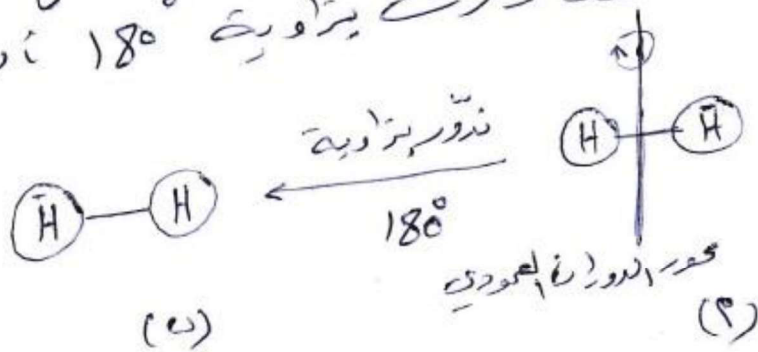 بزاوية 180°
H — H̄
ندوّر بزاوية
180°
H̄ — H
محور الدوران العمودي
(أ)
(ب)